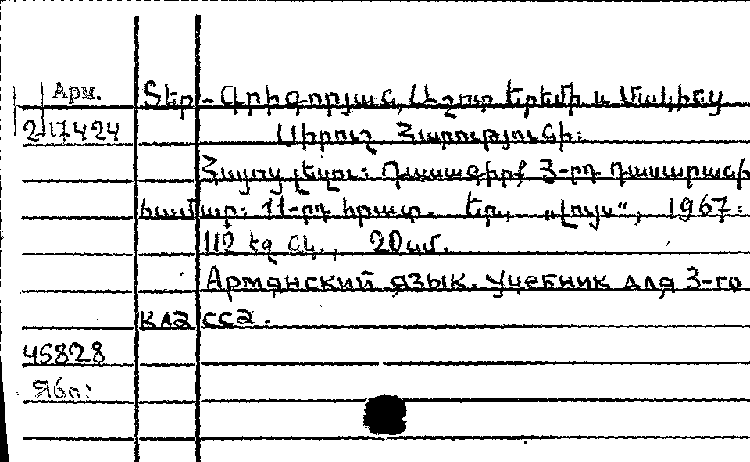 Арм. Տեր-Գրիգորյան, Աշոտ Երեմի և Մակինցյ
217424 Սիրուշ Հարությունի:
Հայոց լեզու: Դասագիրք 3-րդ դասարանի
համար: 11-րդ հրատ. Եր., „Լույս“, 1967:
112 էջ նկ., 20սմ.
Армянский язык. Учебник для 3-го
класса.
45828